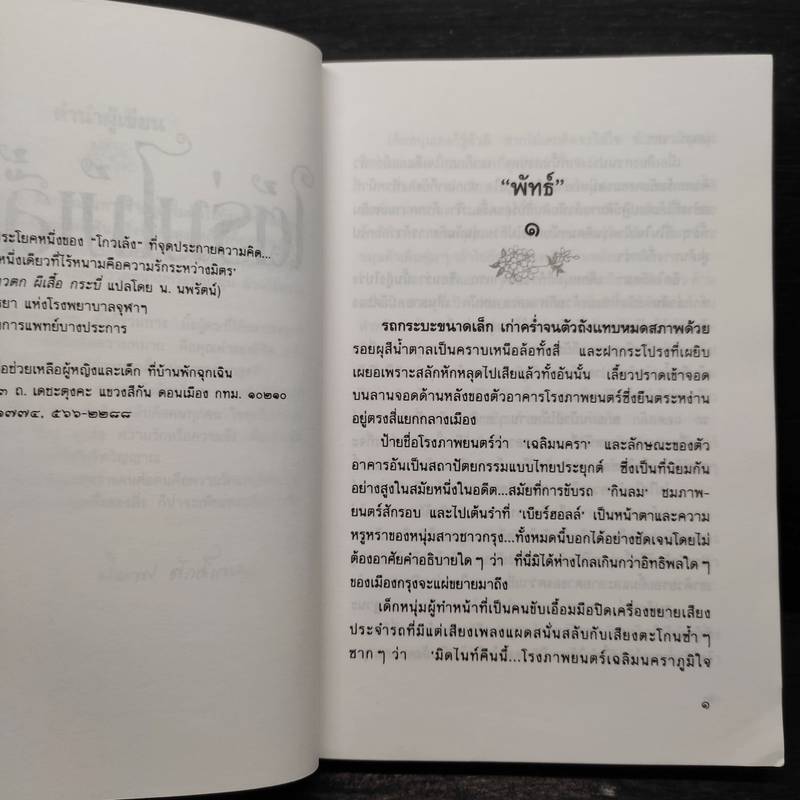 ระโยคหนึ่งของ "โกวเล้ง" ที่จุดประกายความคิด...
หนึ่งเดียวที่ไร้หนามคือความรักระหว่างมิตร'
วตก ผีเสื้อ กระบี่ แปลโดย น. นพรัตน์)
รยา แห่งโรงพยาบาลจุฬาฯ
งการแพทย์บางประการ
อช่วยเหลือผู้หญิงและเด็ก ที่บ้านพักฉุกเฉิน
๓ ถ. เดชะตุงคะ แขวงสีกัน ดอนเมือง กทม. ๑๐๒๑๐
๑๗๗๔, ๕๖๖-๒๒๘๘
"พัทธ์"
๑
รถกระบะขนาดเล็ก เก่าคร่ำจนตัวถังแทบหมดสภาพด้วย
รอยผุสีน้ำตาลเป็นคราบเหนือล้อทั้งสี่ และฝากระโปรงที่เผยิบ
เผยอเพราะสลักหักหลุดไปเสียแล้วทั้งอันนั้น เลี้ยวปราดเข้าจอด
บนลานจอดด้านหลังของตัวอาคารโรงภาพยนตร์ซึ่งยืนตระหง่าน
อยู่ตรงสี่แยกกลางเมือง
ป้ายชื่อโรงภาพยนตร์ว่า 'เฉลิมนครา' และลักษณะของตัว
อาคารอันเป็นสถาปัตยกรรมแบบไทยประยุกต์ ซึ่งเป็นที่นิยมกัน
อย่างสูงในสมัยหนึ่งในอดีต...สมัยที่การขับรถ 'กินลม' ชมภาพ-
ยนตร์สักรอบ และไปเต้นรำที่ 'เบียร์ฮอลล์' เป็นหน้าตาและความ
หรูหราของหนุ่มสาวชาวกรุง...ทั้งหมดนี้บอกได้อย่างชัดเจนโดยไม่
ต้องอาศัยคำอธิบายใดๆ ว่า ที่นี่มิได้ห่างไกลเกินกว่าอิทธิพลใดๆ
ของเมืองกรุงจะแผ่ขยายมาถึง
เด็กหนุ่มผู้ทำหน้าที่เป็นคนขับเอื้อมมือปิดเครื่องขยายเสียง
ประจำรถที่มีแต่เสียงเพลงแผดสนั่นสลับกับเสียงตะโกนซ้ำๆ
ซากๆ ว่า 'มิดไนท์คืนนี้...โรงภาพยนตร์เฉลิมนคราภูมิใจ
๑